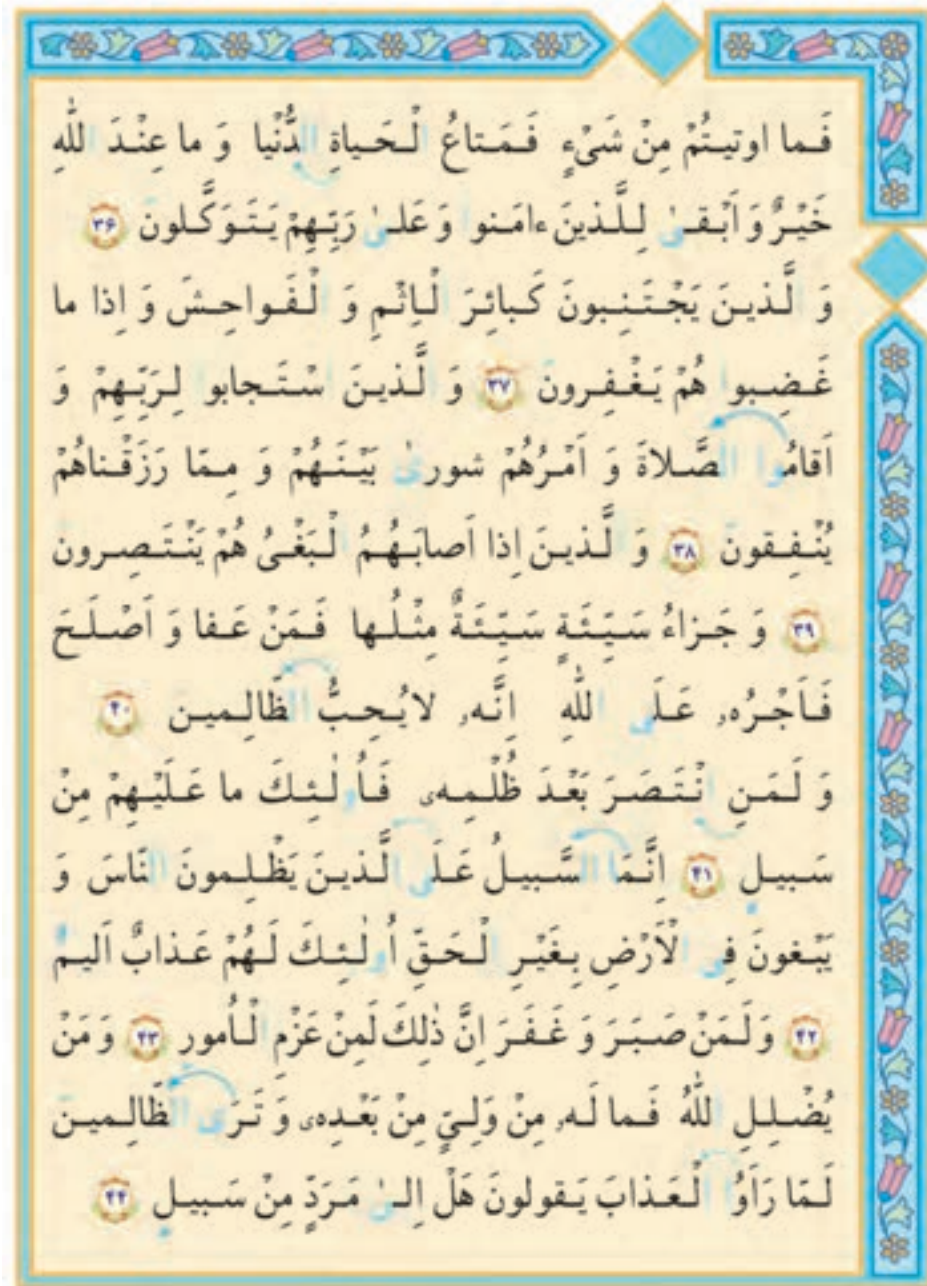 فَما اوتیتُمْ مِنْ شَیْءٍ فَمَتاعُ الْحَیاةِ الدُّنْیا وَ ما عِنْدَ اللّٰهِ
خَیْرٌ وَ اَبْقیٰ لِلَّذینَ ءامَنوا وَ عَلیٰ رَبِّهِمْ یَتَوَکَّلونَ ﴿۳۶﴾
وَ الَّذینَ یَجْتَنِبونَ کَبائِرَ الْاِثْمِ وَ الْفَواحِشَ وَ اِذا ما
غَضِبوا هُمْ یَغْفِرونَ ﴿۳۷﴾ وَ الَّذینَ اسْتَجابوا لِرَبِّهِمْ وَ
اَقامُوا الصَّلاةَ وَ اَمْرُهُمْ شوریٰ بَیْنَهُمْ وَ مِمّا رَزَقْناهُمْ
یُنْفِقونَ ﴿۳۸﴾ وَ الَّذینَ اِذا اَصابَهُمُ الْبَغْیُ هُمْ یَنْتَصِرونَ
﴿۳۹﴾ وَ جَزاءُ سَیِّئَةٍ سَیِّئَةٌ مِثْلُها فَمَنْ عَفا وَ اَصْلَحَ
فَاَجْرُهُۥ عَلَی اللّٰهِ اِنَّهُۥ لایُحِبُّ الظّالِمینَ ﴿۴۰﴾
وَ لَمَنِ انْتَصَرَ بَعْدَ ظُلْمِهٖ فَاُولٰئِکَ ما عَلَیْهِمْ مِنْ
سَبیلٍ ﴿۴۱﴾ اِنَّمَا السَّبیلُ عَلَی الَّذینَ یَظْلِمونَ النّاسَ وَ
یَبْغونَ فِی الْاَرْضِ بِغَیْرِ الْحَقِّ اُولٰئِکَ لَهُمْ عَذابٌ اَلیمٌ
﴿۴۲﴾ وَ لَمَنْ صَبَرَ وَ غَفَرَ اِنَّ ذٰلِکَ لَمِنْ عَزْمِ الْاُمورِ ﴿۴۳﴾ وَ مَنْ
یُضْلِلِ اللّٰهُ فَما لَهُۥ مِنْ وَلِیٍّ مِنْ بَعْدِهٖ وَ تَرَی الظّالِمینَ
لَمّا رَاَوُا الْعَذابَ یَقولونَ هَلْ اِلیٰ مَرَدٍّ مِنْ سَبیلٍ ﴿۴۴﴾